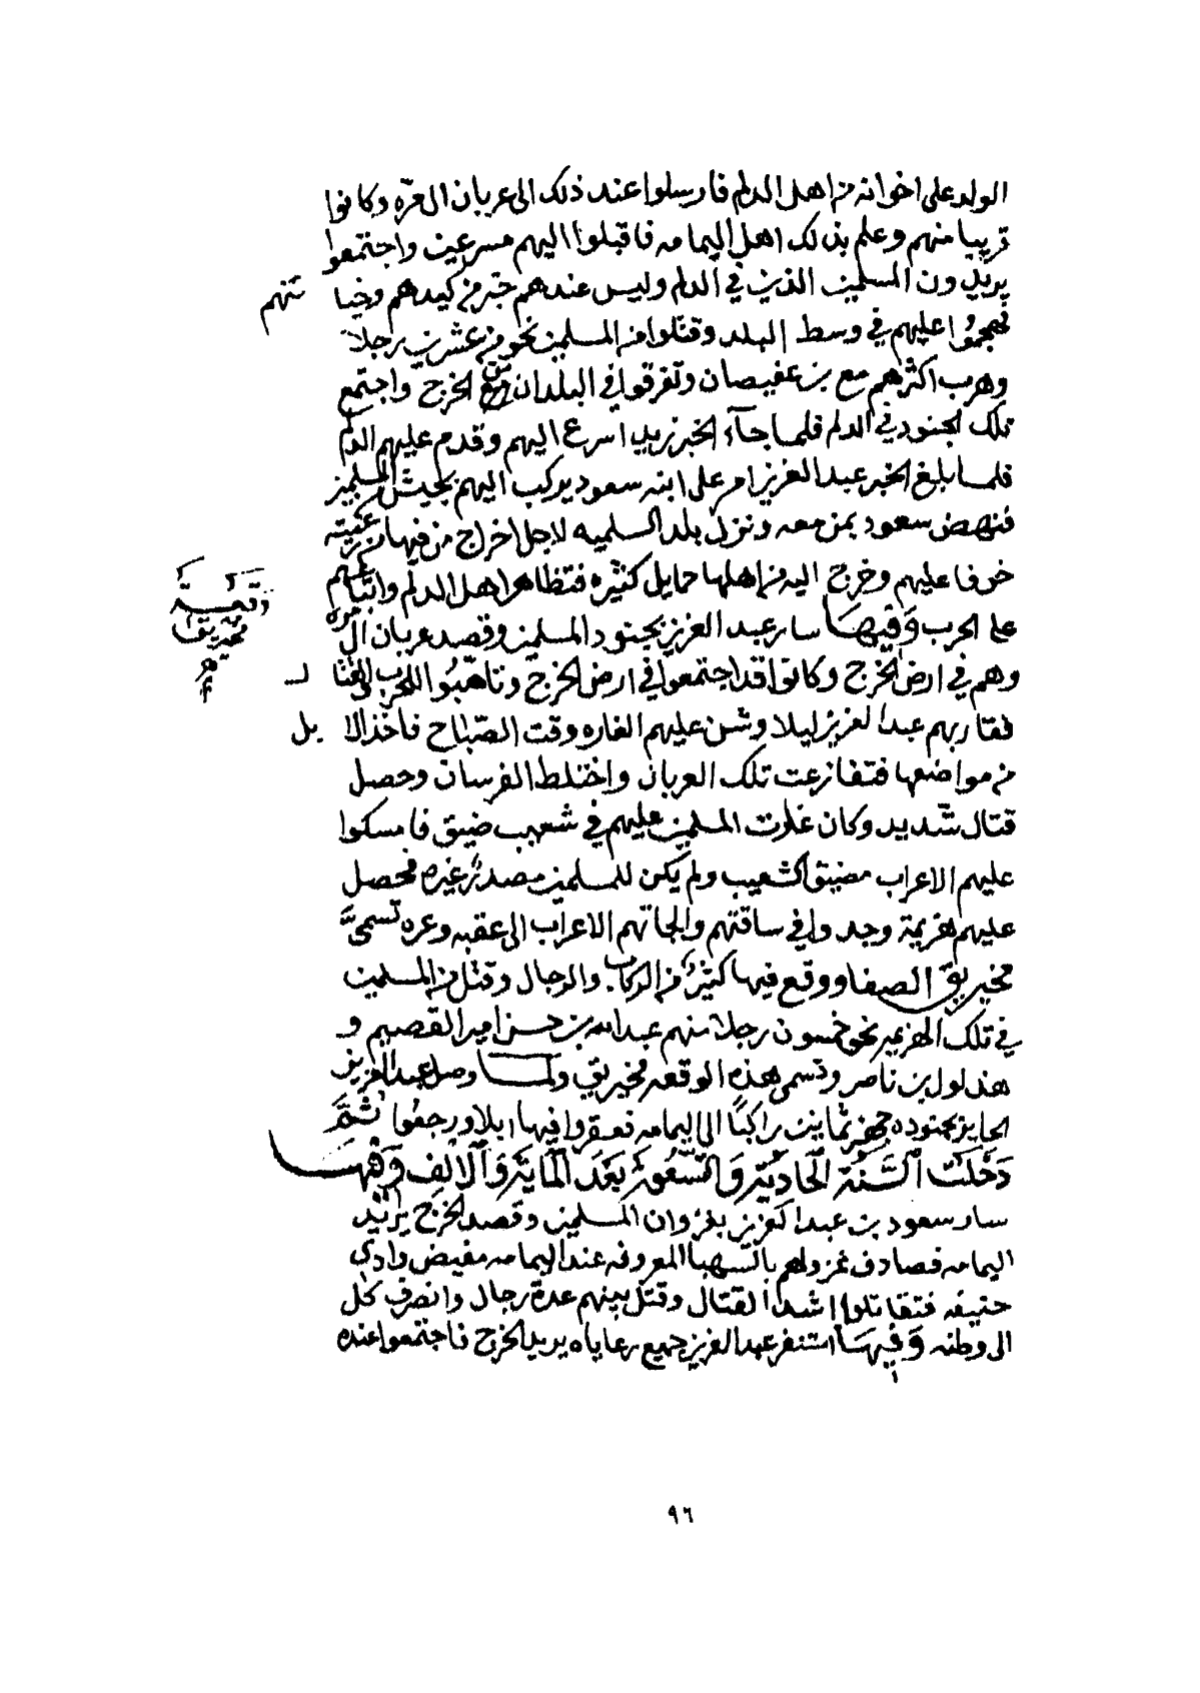 الولد على اخوانه من اهل الدلم فارسلوا عند ذلك الى عربان ال مره وكانوا
قريبا منهم وعلم بذلك اهل اليمامه فاقبلوا اليهم مسرعين واجتمعوا
يريدون المسلمين الذين في الدلم وليس عندهم خبر من كيدهم وخيا نتهم
فهجموا عليهم في وسط البلد وقتلوا من المسلمين نحو من عشرين رجلا
وهرب اكثرهم مع بن عفيصان وتفرقوا في البلدان من الخرج واجتمع
تلك الجنود في الدلم فلما جآء الخبر زيد اسرع اليهم وقدم عليهم الدلم
فلما بلغ الخبر عبد العزيز امر على ابنه سعود يركب اليهم بجيش المسلمين
فنهض سعود بمن معه ونزل بلد السلميه لاجل اخراج من فيها من عقيته
خوفا عليهم وخرج اليه من اهلها حمايل كثيره فتظاهر اهل الدلم واتباعهم
على الحرب وَفيهَا سار عبد العزيز بجنود المسلمين وقصد عربان ال مره
وهم في ارض الخرج وكانوا قد اجتمعوا في ارض الخرج وتاهّبُوا للحرب والقتا ل
فقاربهم عبد العزيز ليلا وشن عليهم الغاره وقت الصّباح فاخذ الا بل
من مواضعها فتفازعت تلك العربان واختلط الفرسان وحصل
قتال شديد وكان غارت المسلمين عليهم في شعيب ضيق فامسكوا
عليهم الاعراب مضيق الشعيب ولم يكن للمسلمين مصدر غيره فحصل
عليهم هزيمة وجدوا في ساقتهم والجاتهم الاعراب الى عقبه وعره تسمىَّ
مخيريق الصفا ووقع فيها كثير من الركاب والرجال وقتل من المسلمين
في تلك الهزيمه نحو خمسون رجلا منهم عبدالله بن حسن امير القصيم و
هذلول بن ناصر وتسمى هذه الوقعه مخيريق ولما وصل عبد العزيز
الحاير بجنوده جهز ثمانين راكبًا الى اليمامه فعقروا فيها ابلا ورجعُوا ثُمَّ
دَخَلَتْ اَلسَّنَة الحَادِيَة وَالتّسْعُونَ بَعْدَ المَايَة وَالْالف وَفيها
سار سعود بن عبد العزيز بغزوان المسلمين وقصد الخرج يريد
اليمامه فصادف غزو لهم بالسهبا المعروفه عند اليمامه مفيض وادي
حنيفه فتقاتلوا اشد القتال وقتل بينهم عدة رجال وانصرف كل
الى وطنه وَفيهَا استنفر عبد العزيز جميع رعاياه يريد الخرج فاجتمعوا عنده
وقعة
مخيريق
٩٦